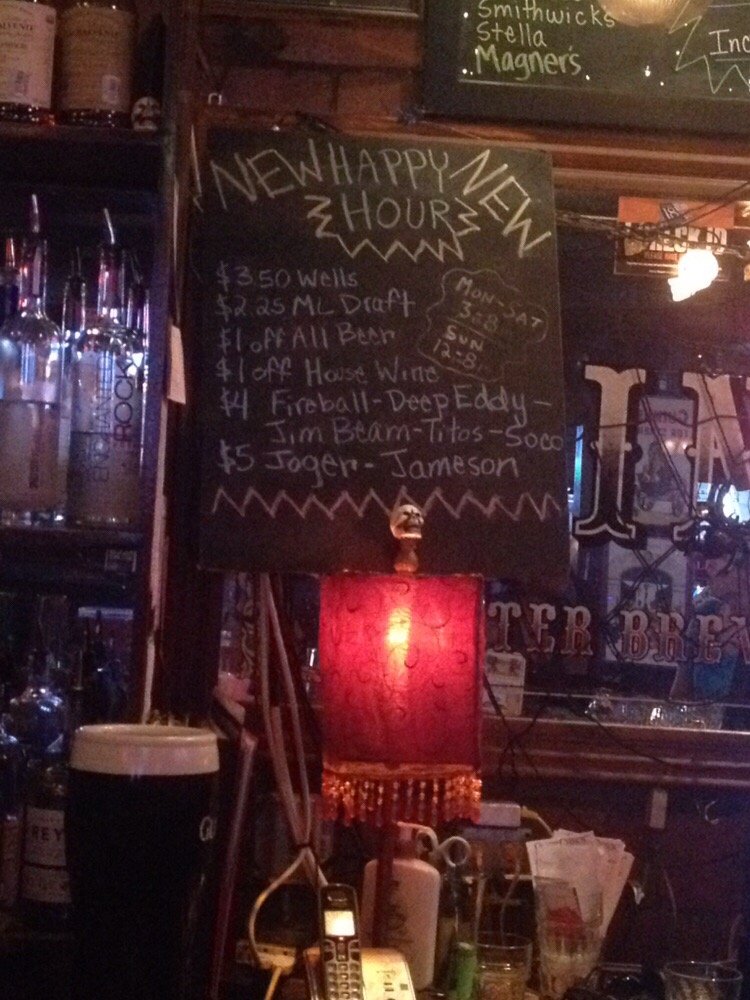 Smithwick's
Stella
Magner's
Inc
NEW HAPPY NEW
HOUR
$3.50 Wells
$2.25 ML Draft
$1 off All Beer
$1 off House Wine
$4 Fireball - Deep Eddy -
Jim Beam - Titos - Soco
$5 Jager - Jameson
MON-SAT
3-8
SUN
12-8
ROCK
TER BREW
REY